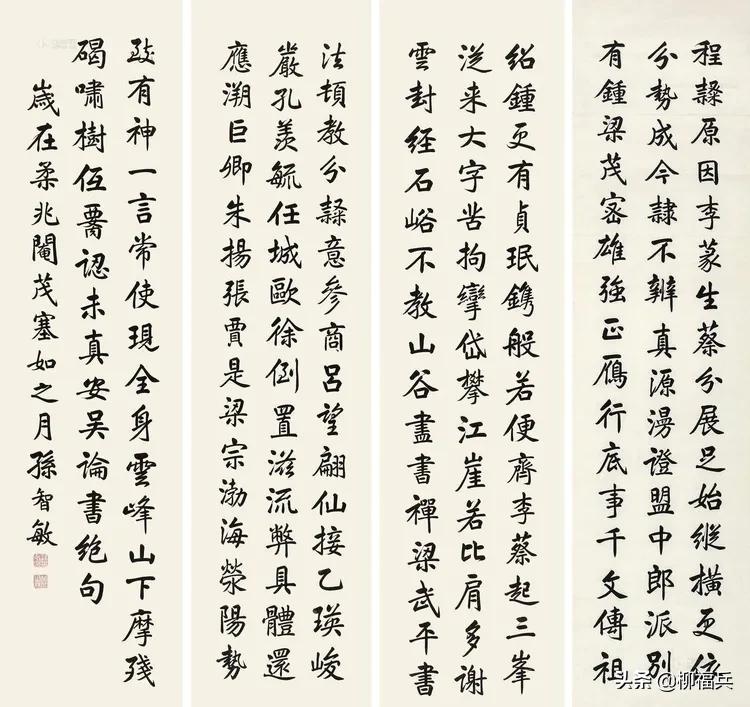 程隸原因李篆生蔡分展足始縱橫更依
分勢成今隸不辨真源漫證盟中郎派別
有鍾梁茂密雄強正雁行底事千文傳祖
紹鍾更有貞珉鐫般若便齊李蔡起三峯
從来大字苦拘攣岱攀江崖若比肩多謝
雲封经石峪不教山谷盡書禪梁武平書
法頓教分隸意參商吕望翩仙接乙瑛峻
嚴孔羨毓任城歐徐倒置滋流弊具體還
應溯巨卿朱揚張賈是梁宗渤海滎陽勢
致有神一言常使現全身雲峰山下摩殘
碣嘯樹低罾認未真安吴論書绝句
歲在柔兆閹茂塞如之月孫智敏
头条 @柳福兵